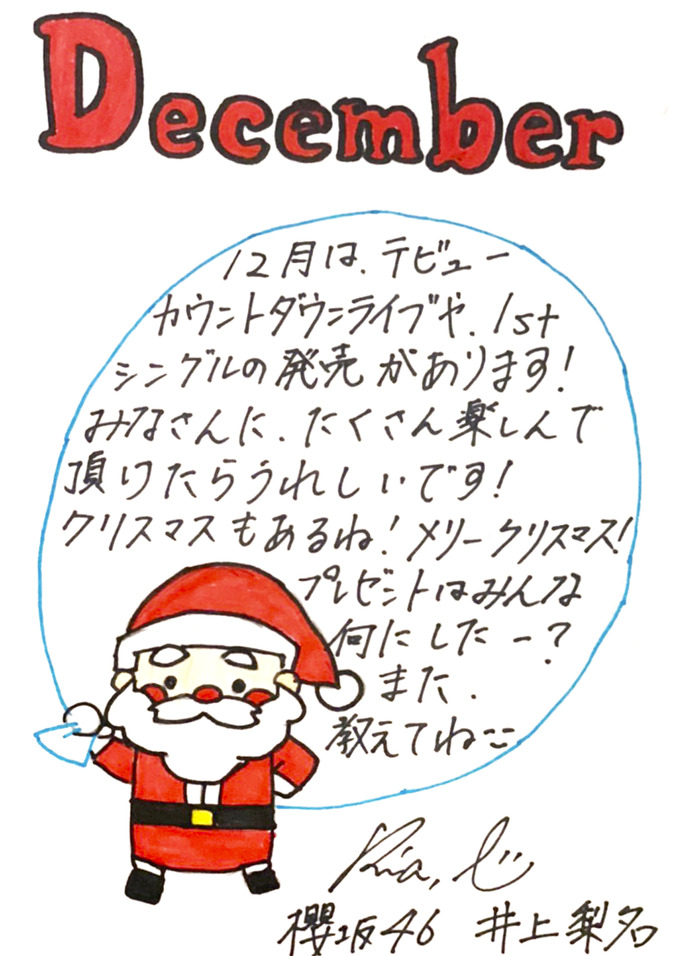 December
12月は、デビュー
カウントダウンライブや、1st
シングルの発売があります!
みなさんに、たくさん楽しんで
頂けたらうれしいです!
クリスマスもあるね!メリークリスマス!
プレゼントはみんな
何にしたー?
また、
教えてね
櫻坂46 井上梨名